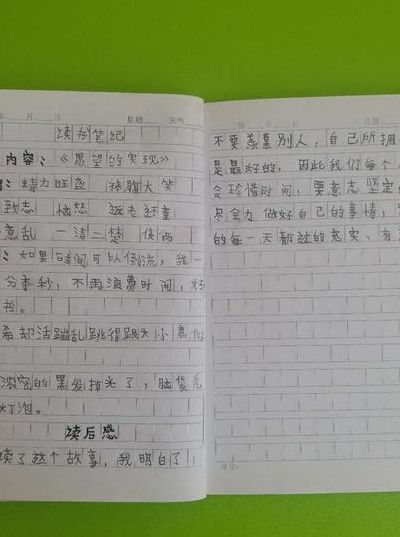 月 日 星期 天气
读书笔记
内容：《愿望的实现》
：精力旺盛 捧腹大笑
致志 恼怒 返老还童
意乱 一清二楚 使
：如果时间可以倒流，我一
分季秒，不再浪费时间，
书。
希却活蹦乱跳得跟头小
浓密的黑发掉光了，脑袋
灯泡。
读后感
读了这个故事，我明白了
不要羡慕别人，自己所拥
是最好的，因此我们每个
会珍惜时间，要意志坚定
尽全力做好自己的事情，
的每一天都过的充实、有